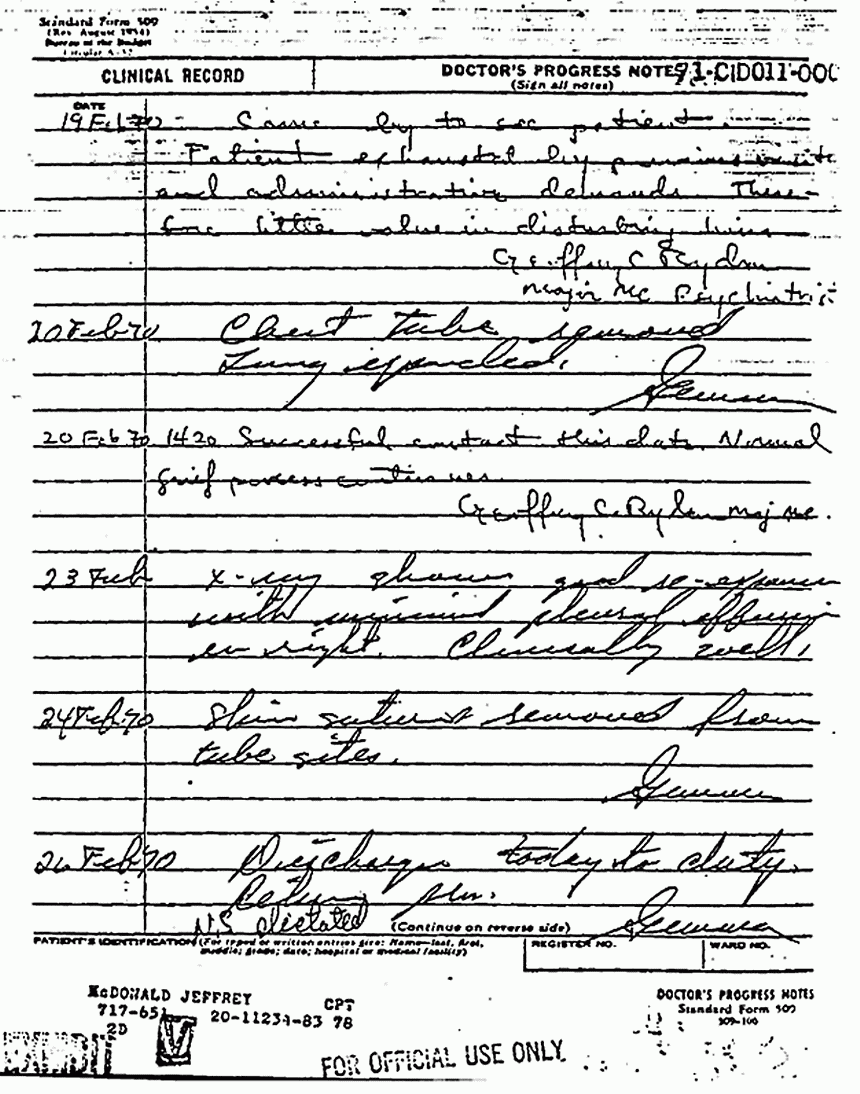 Standard Form 509
(Rev. August 1954)
Bureau of the Budget
Circular A-32
CLINICAL RECORD
DOCTOR'S PROGRESS NOTES
(Sign all notes)
91-CID011-000
DATE
19 Feb 70 - Came by to see patient.
Patient exhausted by previous visits
and administrative demands. There-
fore little value in disturbing him
Geoffrey C Ryden
Major MC Psychiatrist
20 Feb 70 Chest tube removed
Lung expanded.
20 Feb 70 1420 Successful contact this date. Normal
grief process continues.
Geoffrey C. Ryden Maj MC.
23 Feb X-ray shows good re-expansion
with minimal pleural effusion
on right. Clinically well.
24 Feb 70 Skin sutures removed from
tube sites.
26 Feb 70 Discharge today to duty.
Return prn.
N.S. dictated
(Continue on reverse side)
PATIENT'S IDENTIFICATION (For typed or written entries give: Name—last, first,
middle; grade; date; hospital or medical facility)
REGISTER NO.
WARD NO.
McDONALD JEFFREY CPT
717-651 20-11234-83 78
2D
V
DOCTOR'S PROGRESS NOTES
Standard Form 509
509-106
EXHIBIT
FOR OFFICIAL USE ONLY